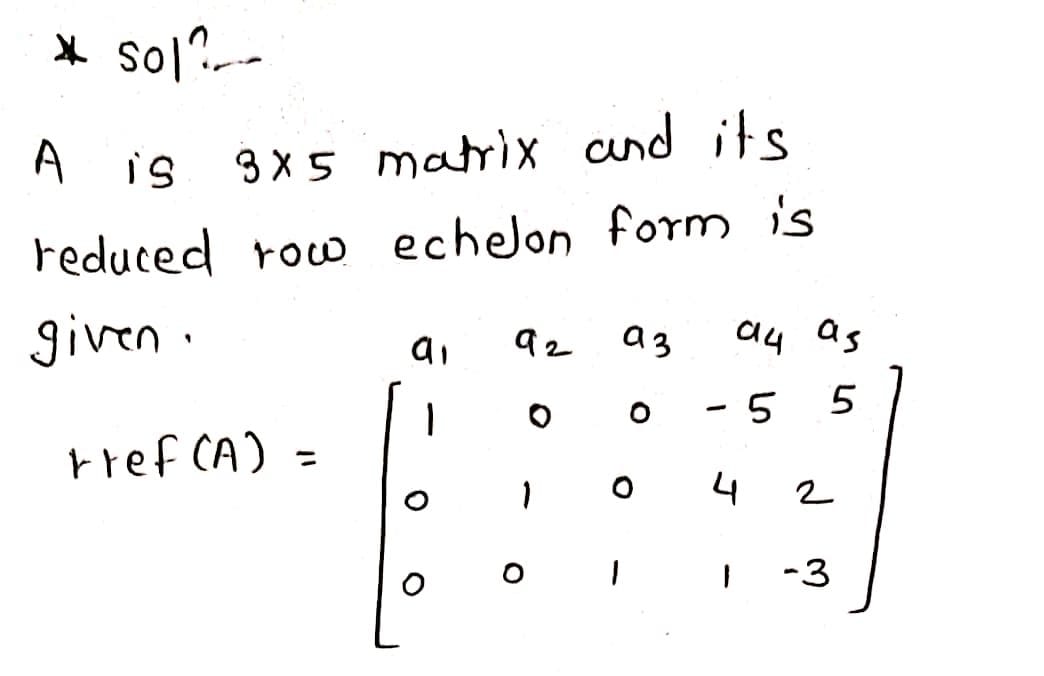 * solⁿ:-
A is 3x5 matrix and its
reduced row echelon form is
given.
a1 a2 a3 a4 a5
1 0 0 -5 5
rref (A) =
0 1 0 4 2
0 0 1 1 -3